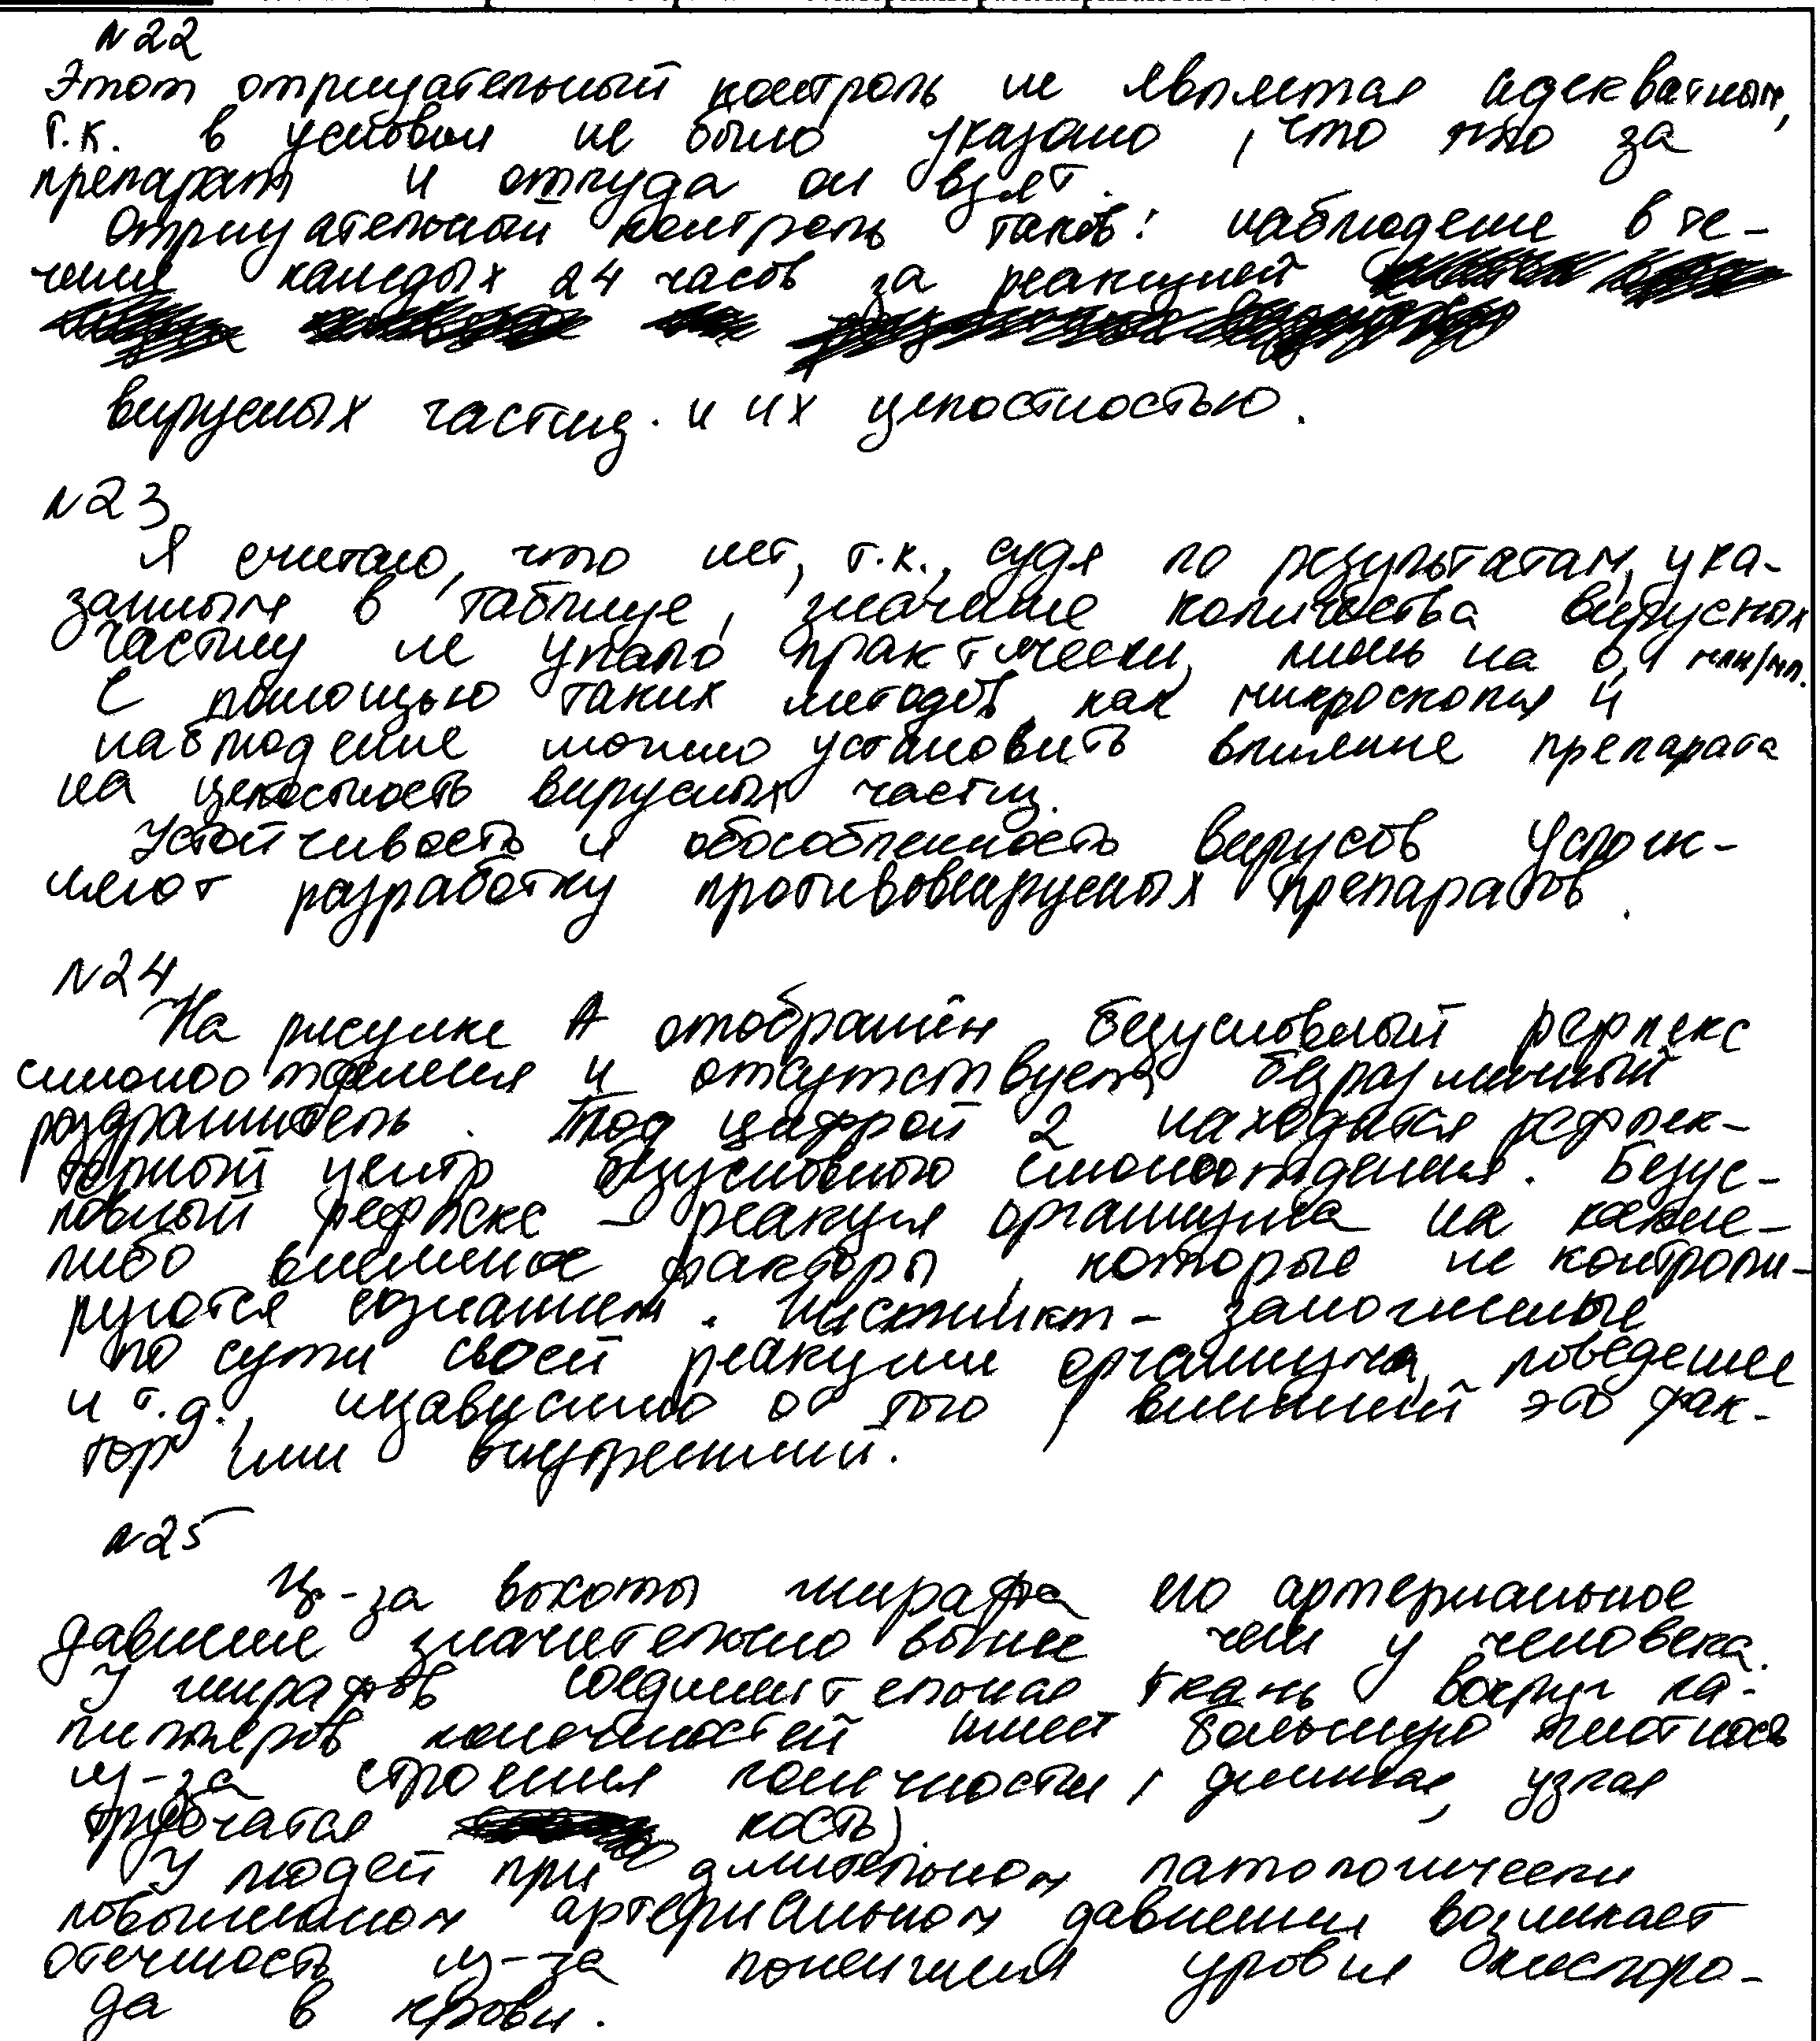 N22
Этот отрицательный контроль не является адекватным,
т.к. в условии не было указано, что это за
препарат и откуда он взят.
Отрицательный контроль таков: наблюдение в те-
чение каждых 24 часов за реакцией
вирусных частиц. и их целостностью.
N23
Я считаю, что нет, т.к., судя по результатам, ука-
занным в таблице, значение количества вирусных
частиц не упало практически, лишь на 0,1 млн/мл.
С помощью таких методов как микроскопия и
наблюдение можно установить влияние препарата
на целостность вирусных частиц.
Устойчивость и обособленность вирусов услож-
няют разработку противовирусных препаратов.
N24
На рисунке А отображён безусловный рефлекс
слюноотделения и отсутствует безразличный
раздражитель. Под цифрой 2 находится рефлек-
торный центр безусловного слюноотделения. Безус-
ловный рефлекс – реакция организма на какие-
либо внешние факторы, которые не контроли-
руются сознанием. Инстинкт – заложенные
по сути своей реакции организма, поведение
и т.д., независимо от того, внешний это фак-
тор или внутренний.
N25
Из-за высоты жирафа его артериальное
давление значительно выше чем у человека.
У жирафов соединительная ткань вокруг ка-
пилляров конечностей имеет большую плотность
из-за строения конечности, длинная, узкая
трубчатая кость).
У людей при длительном патологически
повышенном артериальном давлении возникает
отечность из-за понижения уровня кислоро-
да в крови.